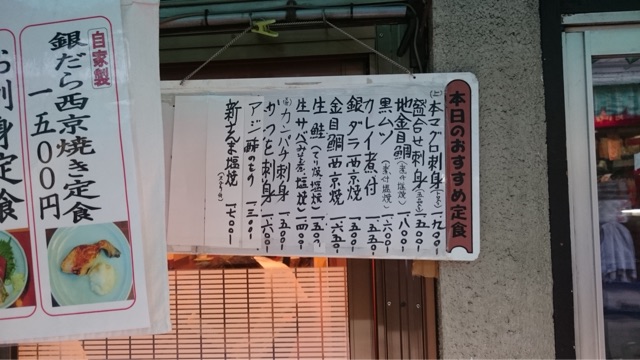 本日のおすすめ定食
本マグロ刺身 一九〇〇
盛合せ刺身 一五〇〇
地金目鯛 一八〇〇
黒ムツ (煮付塩焼) 一六〇〇
カレイ煮付 一五五〇
銀ダラ西京焼 一五〇〇
金目鯛西京焼 一六五〇
生鮭 一五〇〇
生サバ
カンパチ刺身 一五〇〇
刺身 一六〇〇
アジ 一三〇〇
新さんま塩焼 一七〇〇
自家製
銀だら西京焼き定食
一五〇〇円
お刺身定食